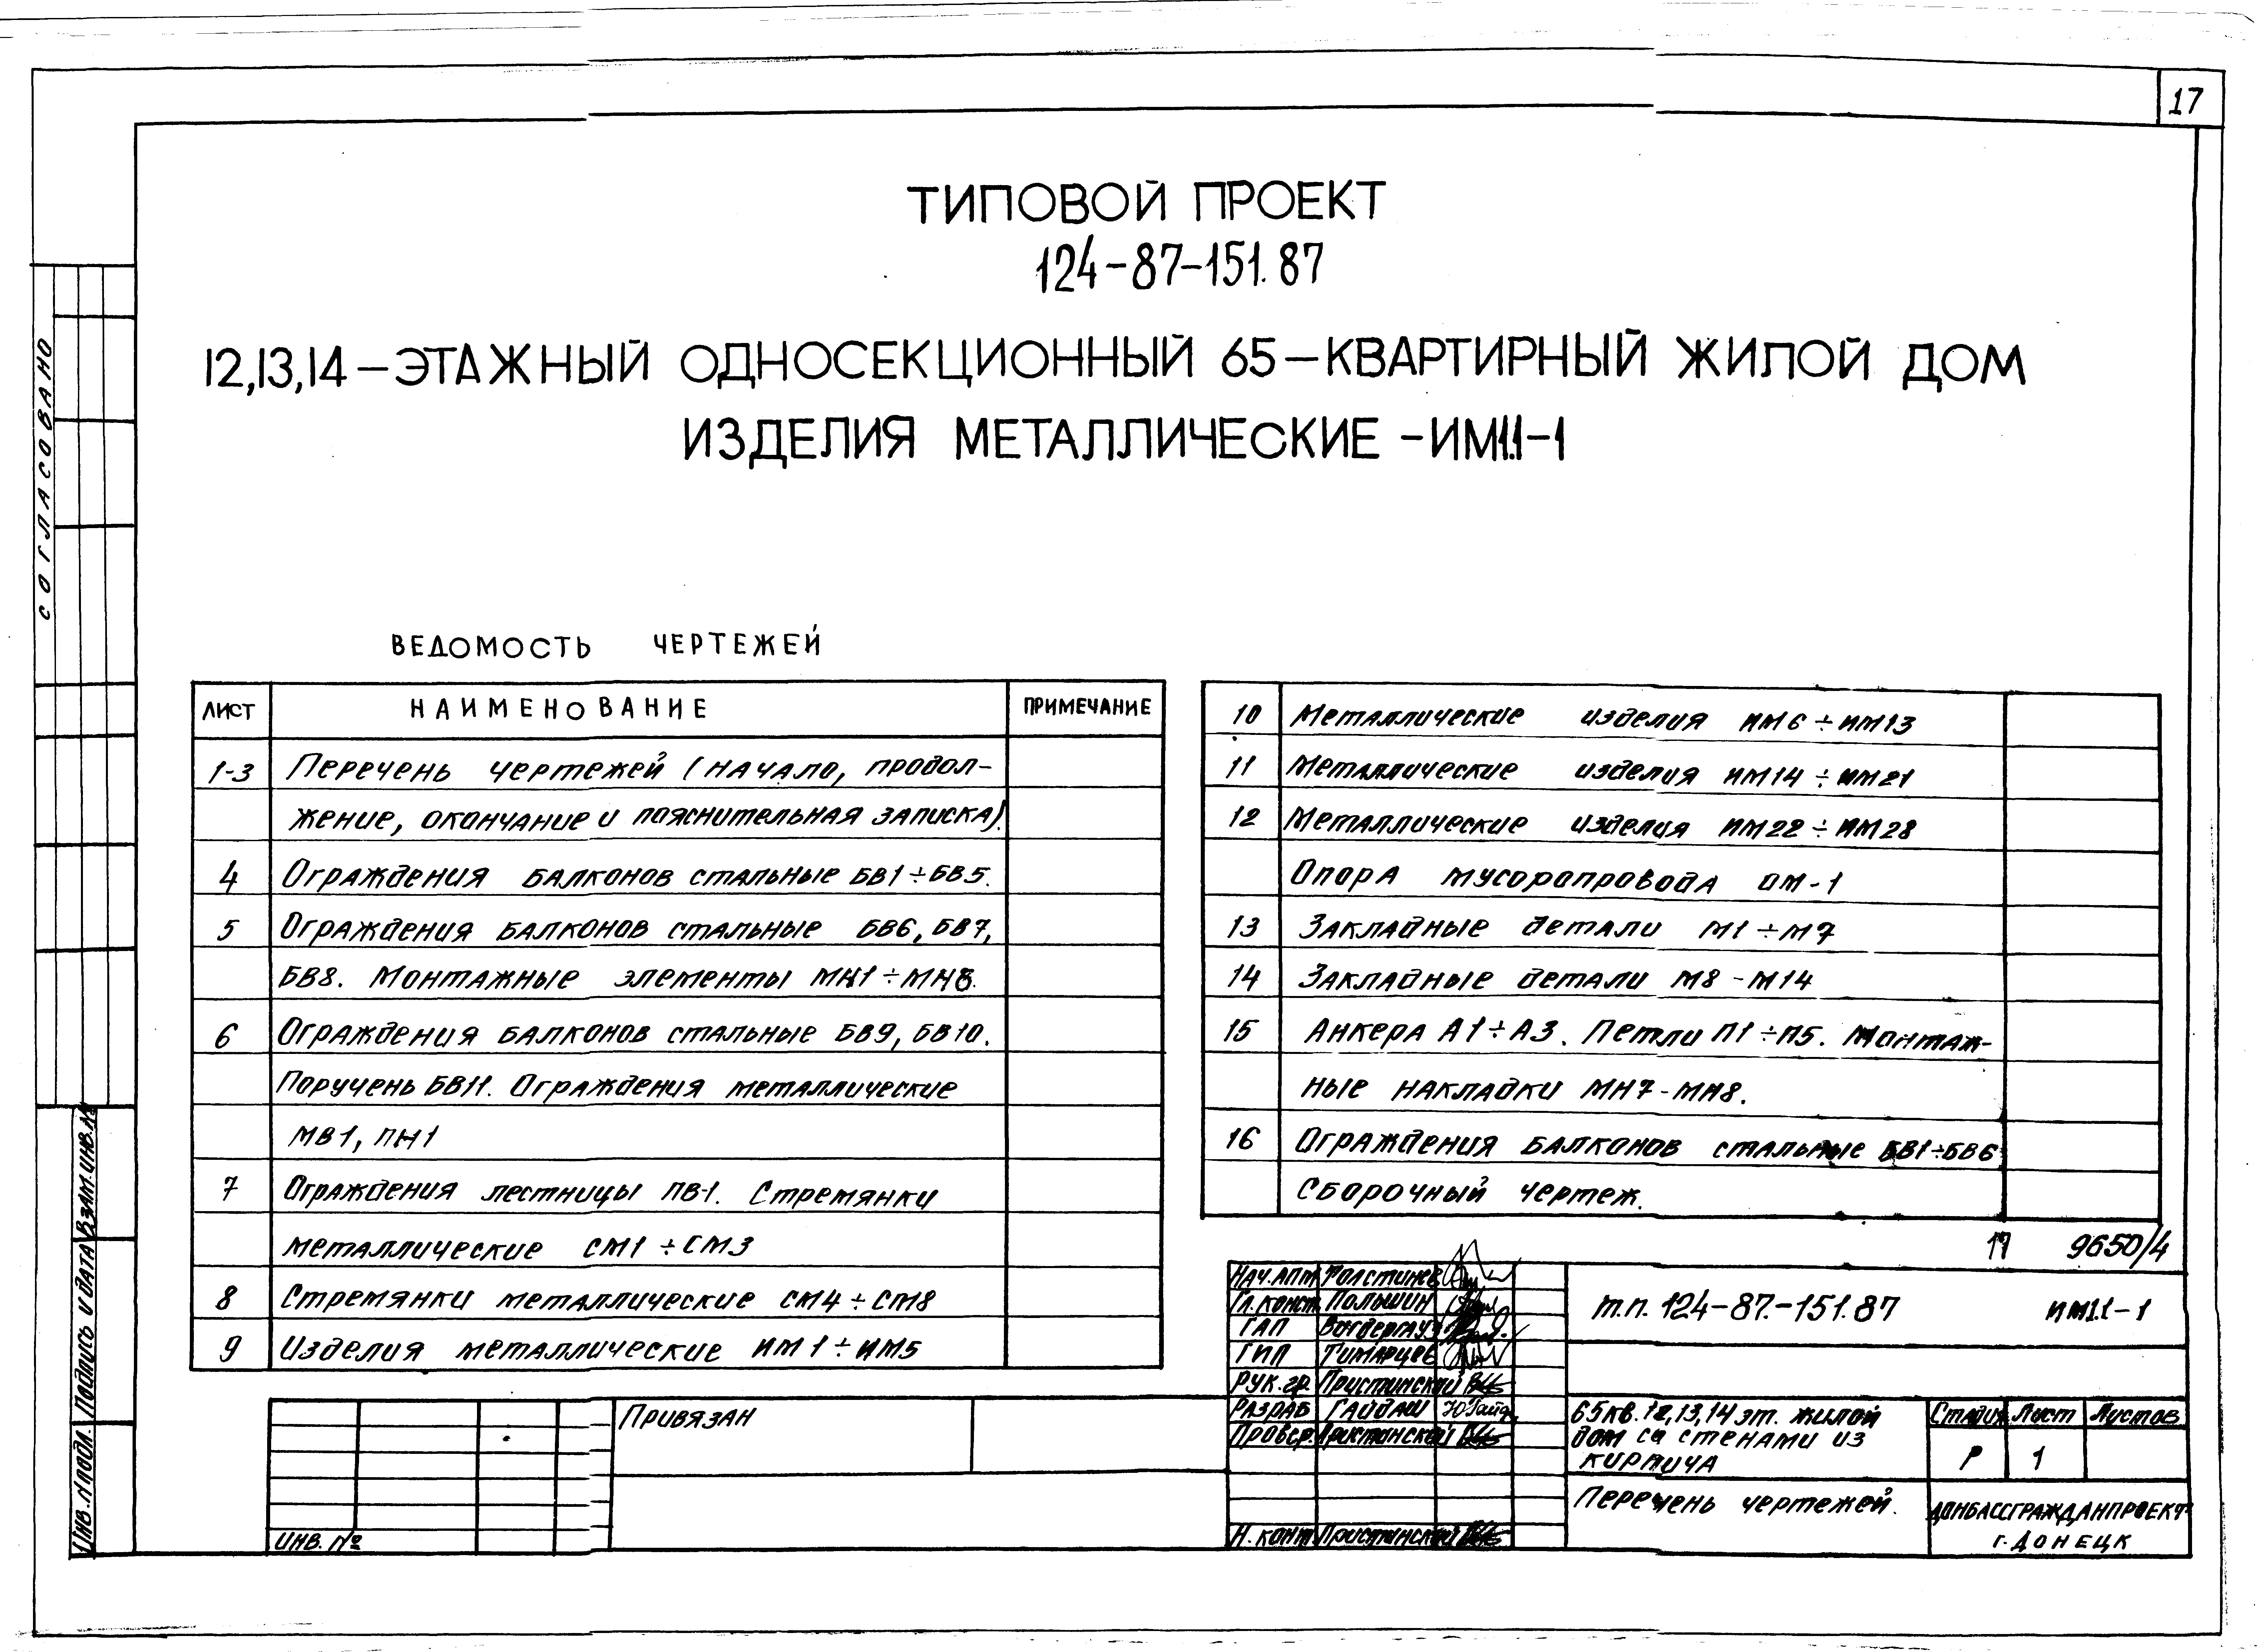 17
ТИПОВОЙ ПРОЕКТ
124-87-151.87
12,13,14-ЭТАЖНЫЙ ОДНОСЕКЦИОННЫЙ 65-КВАРТИРНЫЙ ЖИЛОЙ ДОМ
ИЗДЕЛИЯ МЕТАЛЛИЧЕСКИЕ -ИМ1.1-1
СОГЛАСОВАНО
ВЕДОМОСТЬ ЧЕРТЕЖЕЙ
ЛИСТ НАИМЕНОВАНИЕ ПРИМЕЧАНИЕ
1-3 Перечень чертежей (начало, продол-
жение, окончание и пояснительная записка).
4 Ограждения балконов стальные БВ1÷БВ5.
5 Ограждения балконов стальные БВ6, БВ7,
БВ8. Монтажные элементы МН1÷МН6.
6 Ограждения балконов стальные БВ9, БВ10.
Поручень БВ11. Ограждения металлические
МВ1, ПН1
7 Ограждения лестницы ПВ-1. Стремянки
металлические СМ1÷СМ3
8 Стремянки металлические СМ4÷СМ8
9 Изделия металлические ИМ1÷ИМ5
10 Металлические изделия ИМ6÷ИМ13
11 Металлические изделия ИМ14÷ИМ21
12 Металлические изделия ИМ22÷ИМ28
Опора мусоропровода ОМ-1
13 Закладные детали М1÷М7
14 Закладные детали М8-М14
15 Анкера А1÷А3. Петли П1÷П5. Монтаж-
ные накладки МН7-МН8.
16 Ограждения балконов стальные БВ1÷БВ6
Сборочный чертеж.
17 9650/4
Нач.АПМ Толстичев
Гл.конст. Польшин
ГАП
ГИП Тимарцев
Рук.гр. Пристинский
Разраб Гайдаш
Провер. Пристинский
Н.конт. Пристинский
т.п. 124-87-151.87 ИМ1.1-1
65 кв. 12,13,14 эт. жилой
дом со стенами из
кирпича
Стадия Лист Листов
Р 1
Перечень чертежей.
ДОНБАССГРАЖДАНПРОЕКТ
г. ДОНЕЦК
Привязан
ИНВ. №
Взам.инв.№
Подпись и дата
Инв.№подл.